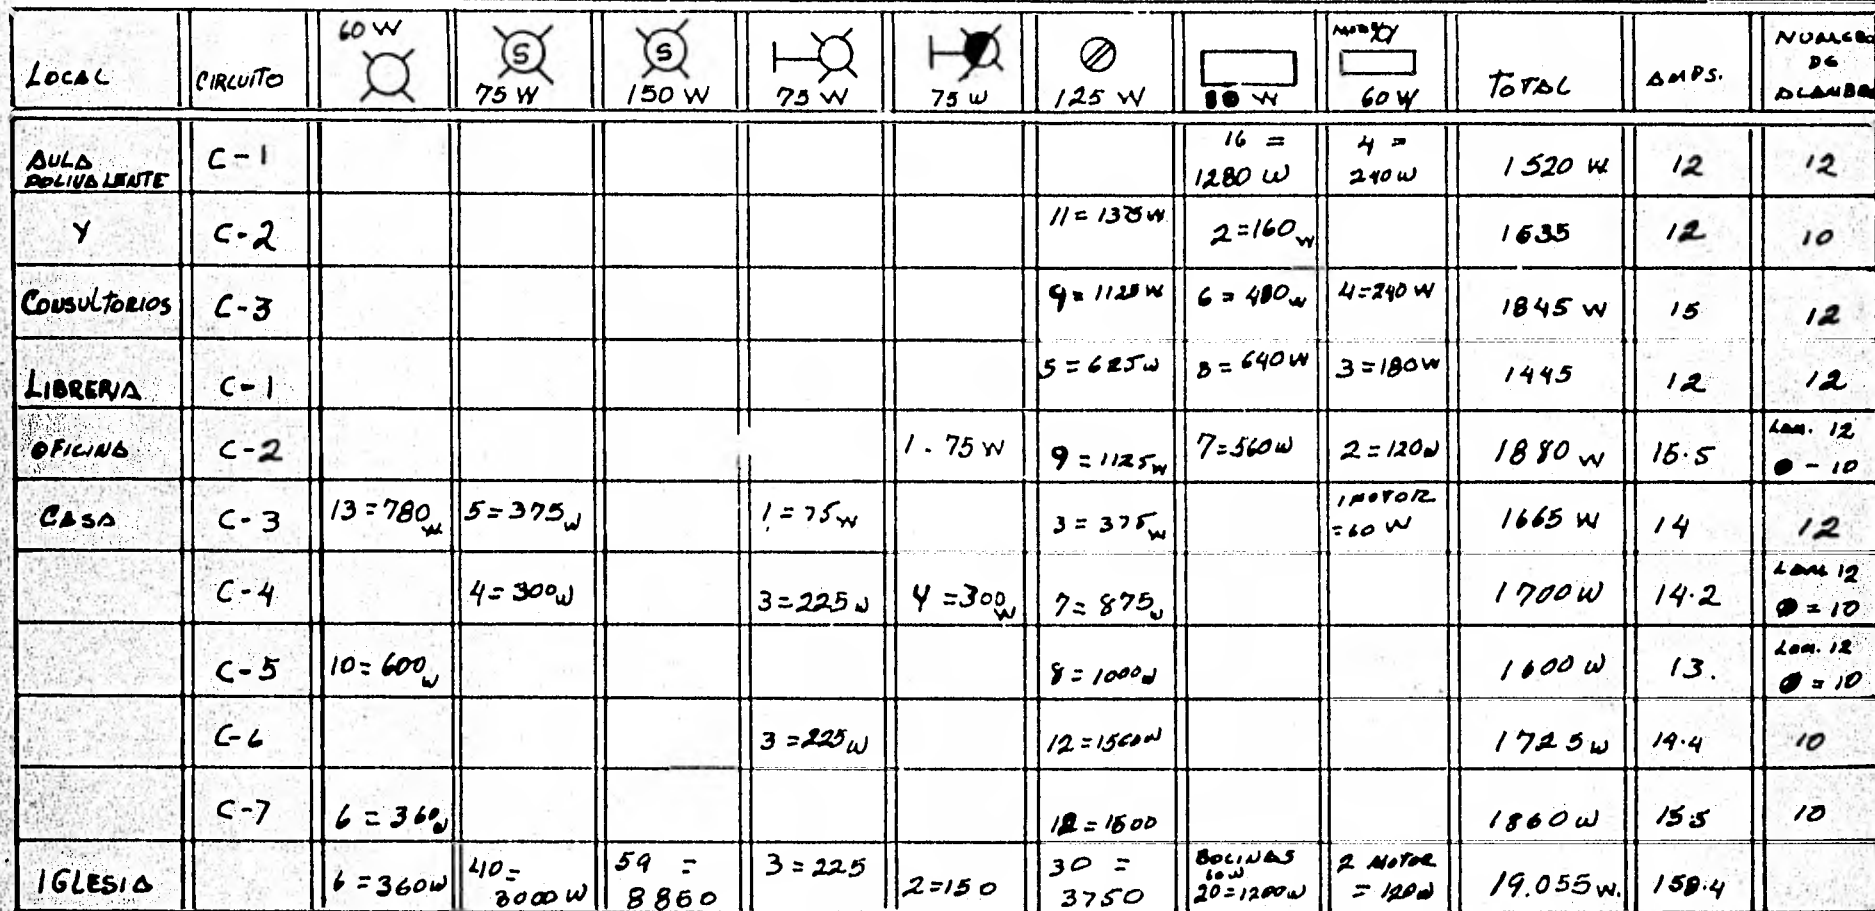 LOCAL CIRCUITO 60 W S 75 W S 150 W 75 W 75 W 125 W 80 W MOTOR 60 W TOTAL AMPS. NUMERO DE ALAMBRE
AULA POLIVALENTE C-1 16 = 1280 W 4 = 240 W 1520 W 12 12
Y C-2 11 = 1375 W 2 = 160 W 1535 12 10
CONSULTORIOS C-3 9 = 1125 W 6 = 480 W 4 = 240 W 1845 W 15 12
LIBRERIA C-1 5 = 625 W 8 = 640 W 3 = 180 W 1445 12 12
OFICINA C-2 1 . 75 W 9 = 1125 W 7 = 560 W 2 = 120 W 1880 W 15.5 Lam. 12 - 10
CASA C-3 13 = 780 W 5 = 375 W 1 = 75 W 3 = 375 W 1 MOTOR = 60 W 1665 W 14 12
C-4 4 = 300 W 3 = 225 W 4 = 300 W 7 = 875 W 1700 W 14.2 Lam 12 = 10
C-5 10 = 600 W 8 = 1000 W 1600 W 13. Lam. 12 = 10
C-6 3 = 225 W 12 = 1500 W 1725 W 14.4 10
C-7 6 = 360 W 12 = 1500 1860 W 15.5 10
IGLESIA 6 = 360 W 40 = 3000 W 59 = 8850 3 = 225 2 = 150 30 = 3750 BOCINAS 60 W 20 = 1200 W 2 MOTOR = 120 W 19.055 W. 158.4